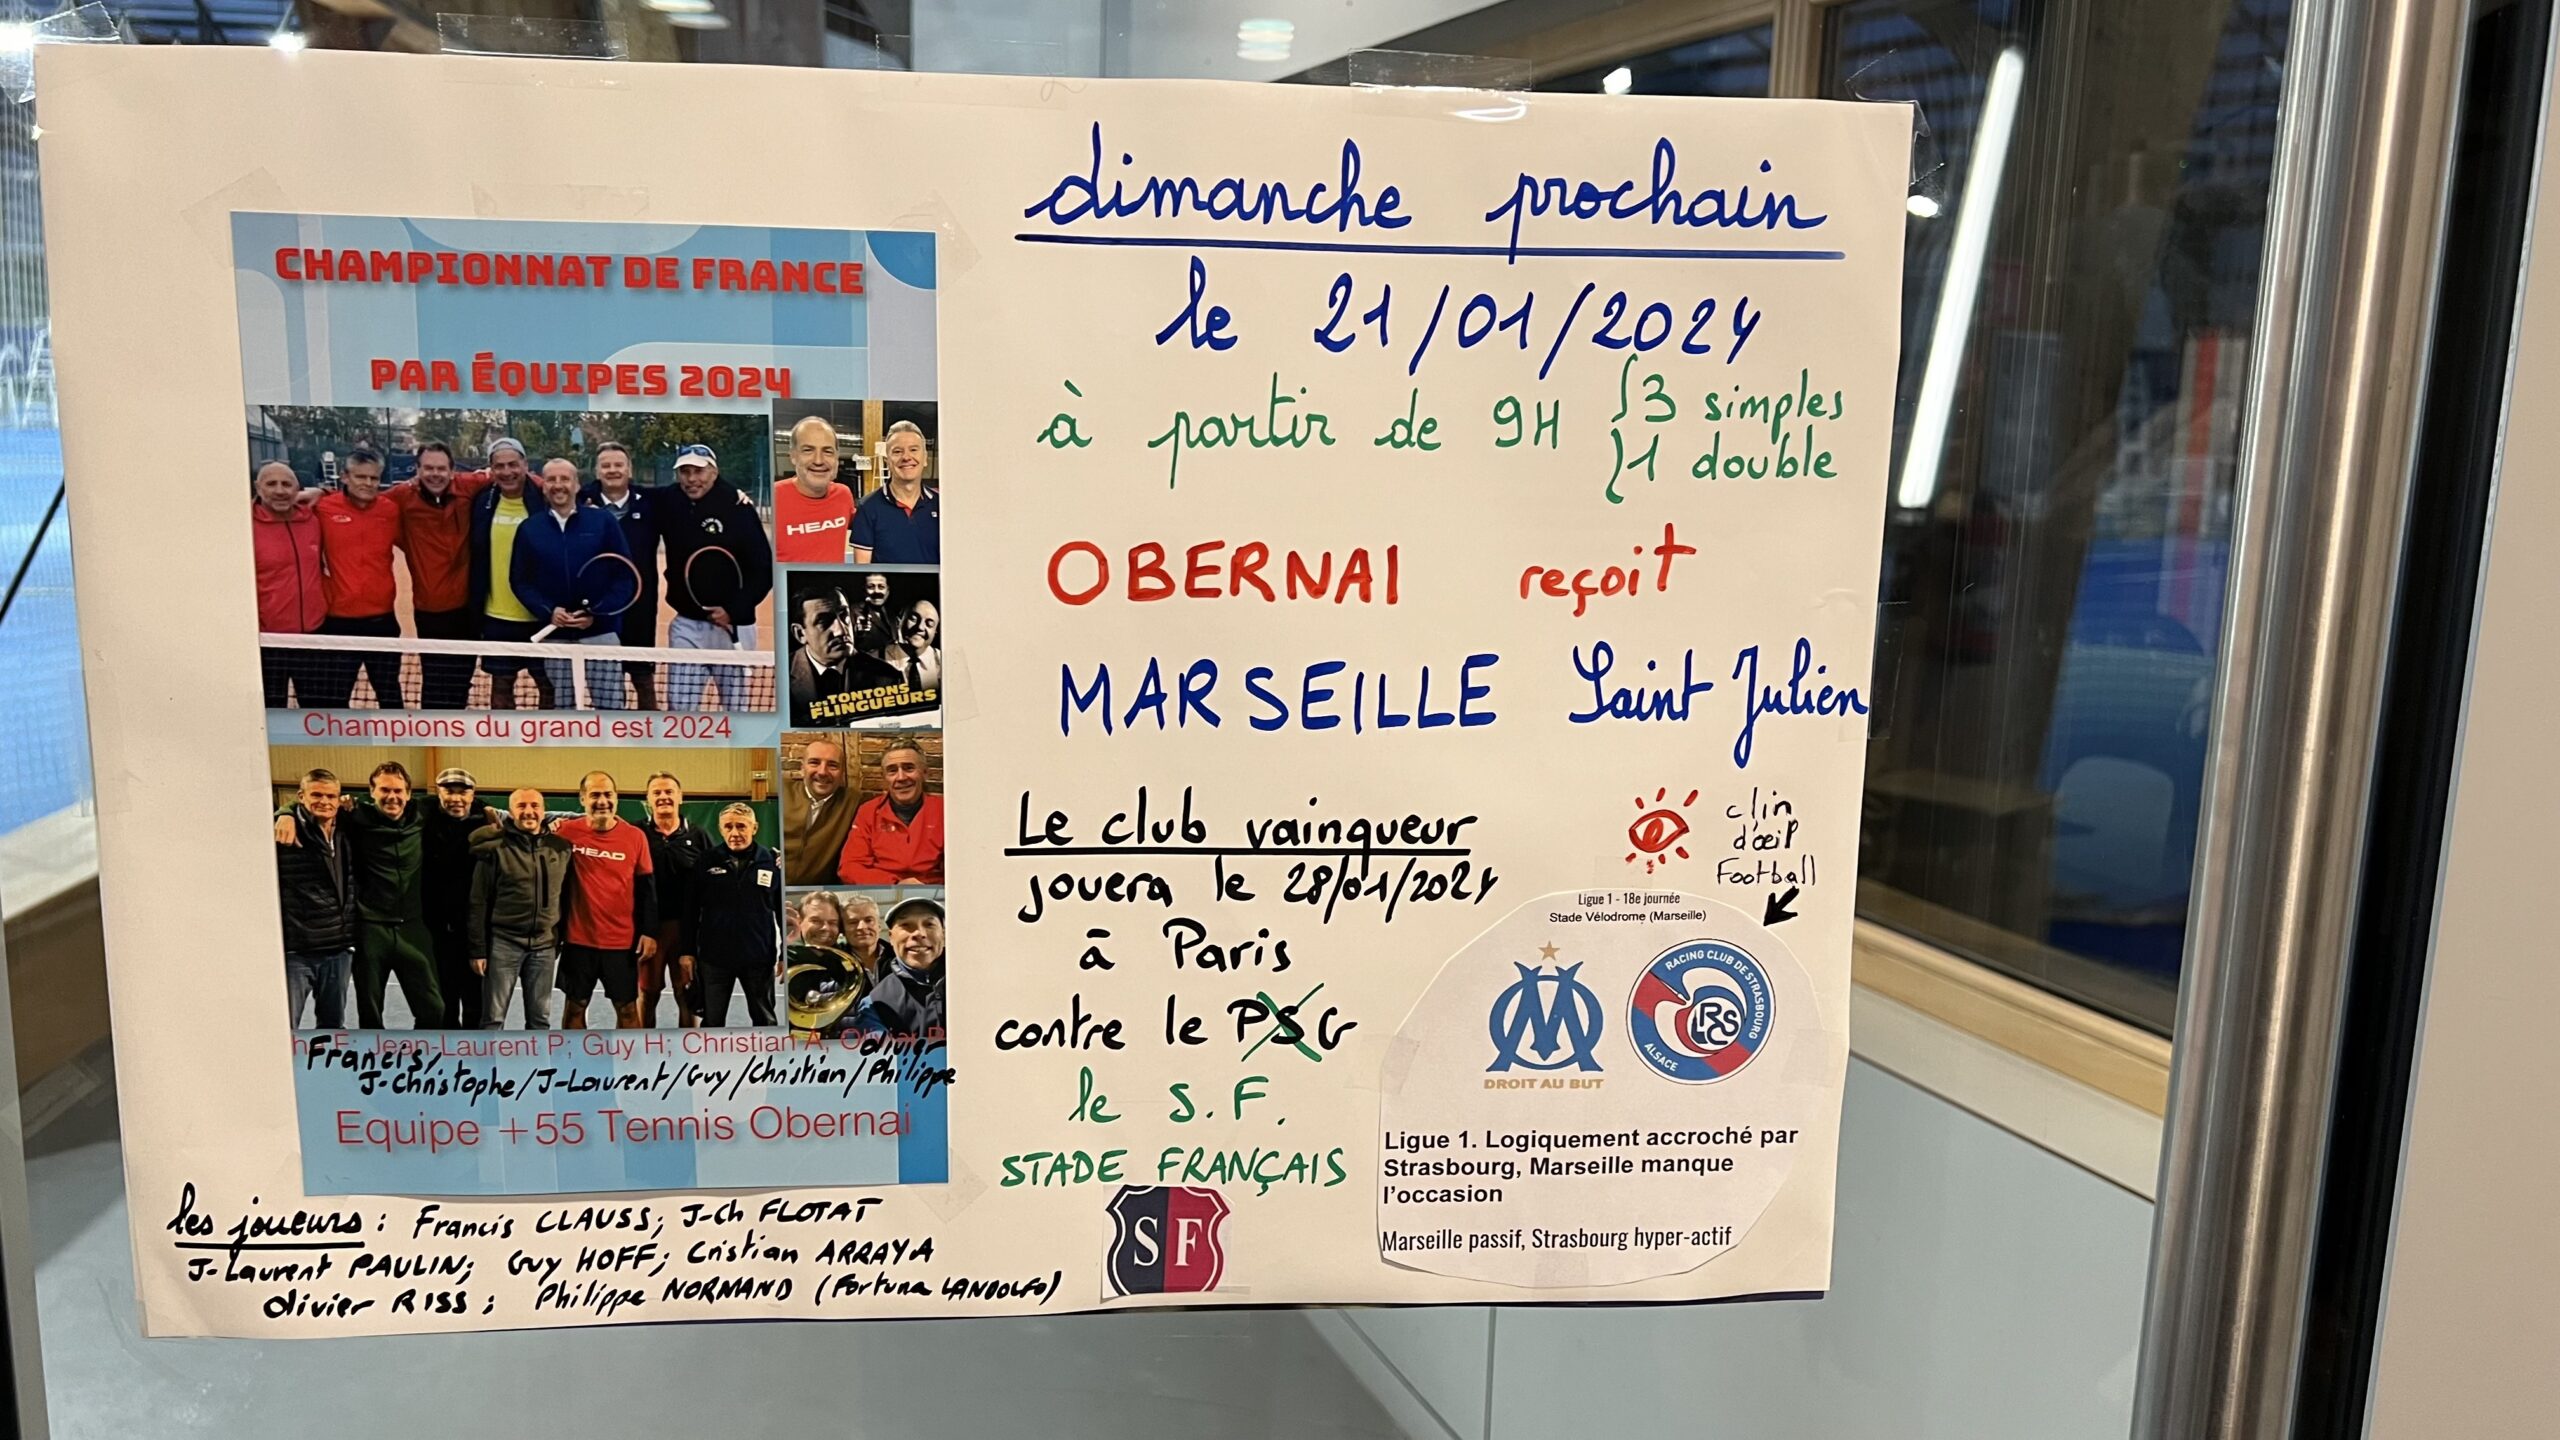 CHAMPIONNAT DE FRANCE
PAR ÉQUIPES 2024
HEAD
HEAD
Les TONTONS
FLINGUEURS
Champions du grand est 2024
HEAD
Jean-Laurent P; Guy H; Christian A; Olivier
Francis, Olivier
J-Christophe/J-Laurent/Guy/Christian/Philippe
Equipe +55 Tennis Obernai
les joueurs : Francis CLAUSS; J-Ch FLOTAT
J-Laurent PAULIN; Guy HOFF; Cristian ARRAYA
Olivier RISS; Philippe NORMAND (Fortuna LANDOLFO)
dimanche prochain
le 21/01/2024
à partir de 9H { 3 simples
1 double
OBERNAI reçoit
MARSEILLE Saint Julien
Le club vainqueur
jouera le 28/01/2024
à Paris
contre le PSG
le S.F.
STADE FRANÇAIS
SF
clin
d'œil
Football
Ligue 1 - 18e journée
Stade Vélodrome (Marseille)
DROIT AU BUT
RACING CLUB DE STRASBOURG
RCS
ALSACE
Ligue 1. Logiquement accroché par
Strasbourg, Marseille manque
l'occasion
Marseille passif, Strasbourg hyper-actif